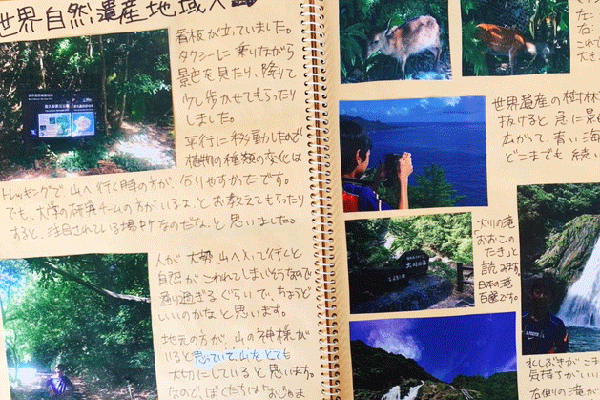 世界自然遺産地域入口
看板が立っていました。
タクシーに乗りながら
景色を見たり、降りて
少し歩かせてもらったり
しました。
平行に移動したので
植物の種類の変化は
トレッキングで山へ行く時の方が、分りやすかったです。
でも、大学の研究チームの方がいるよ、とお教えてもらったり
すると、注目されている場所なのだな、と思いました。
人が大勢山へ入って行くと
自然がこわれてしまいそうなので
通り過ぎるぐらいで、ちょうど
いいのかなと思います。
地元の方が、山の神様が
いると思っていて、山をとても
大切にしていると思います。
なので、ぼくたちは
左:
右:
この
大き
世界遺産の樹林
抜けると、急に景
広がって、青い海
どこまでも続い
大川の滝
「おおこの
たき」と
読みます。
日本の滝
百選です。
水しぶきが
気持ちがい
右側の滝が